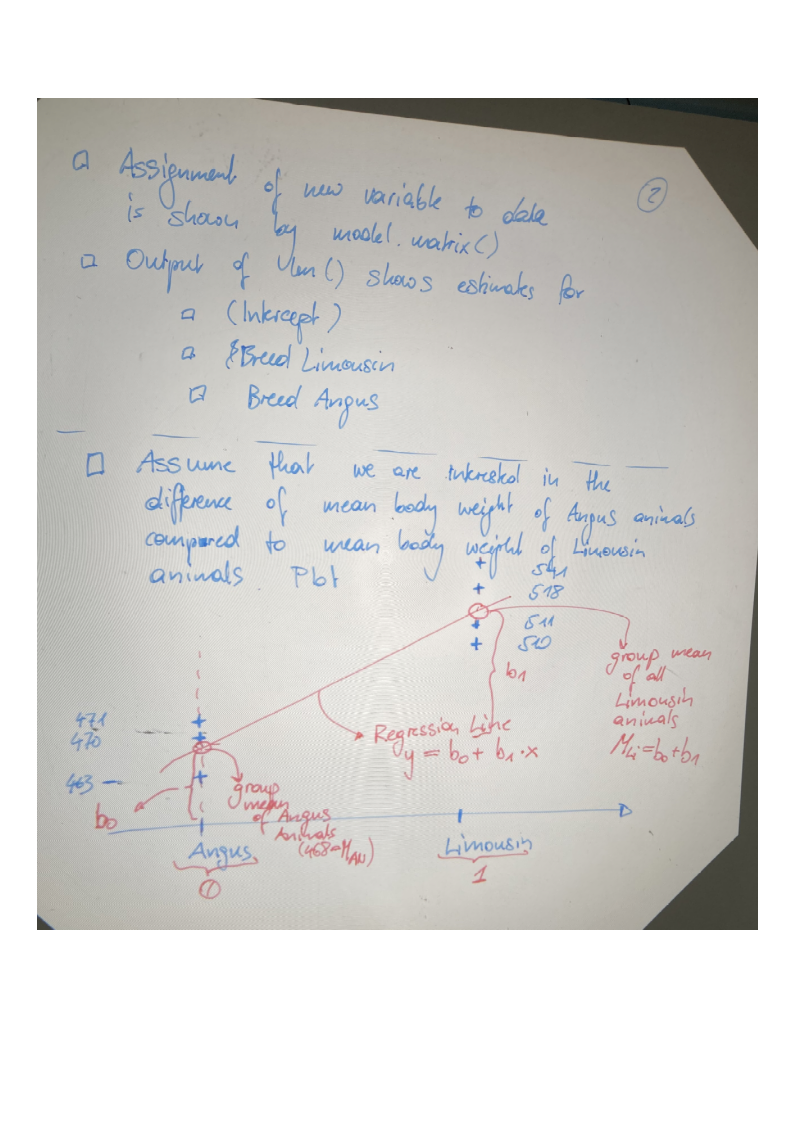 2
Assignment of new variable to data
is shown by model.matrix()
Output of lm() shows estimates for
(Intercept)
Breed Limousin
Breed Angus
Assume that we are interested in the
difference of mean body weight of Angus animals
compared to mean body weight of Limousin
animals Plot
541
518
511
510
b1
group mean
of all
Limousin
animals
MLi=b0+b1
471
470
463
Regression Line
y = b0 + b1·x
b0
group
mean
of Angus
Animals
(468=MAN)
Angus
0
Limousin
1